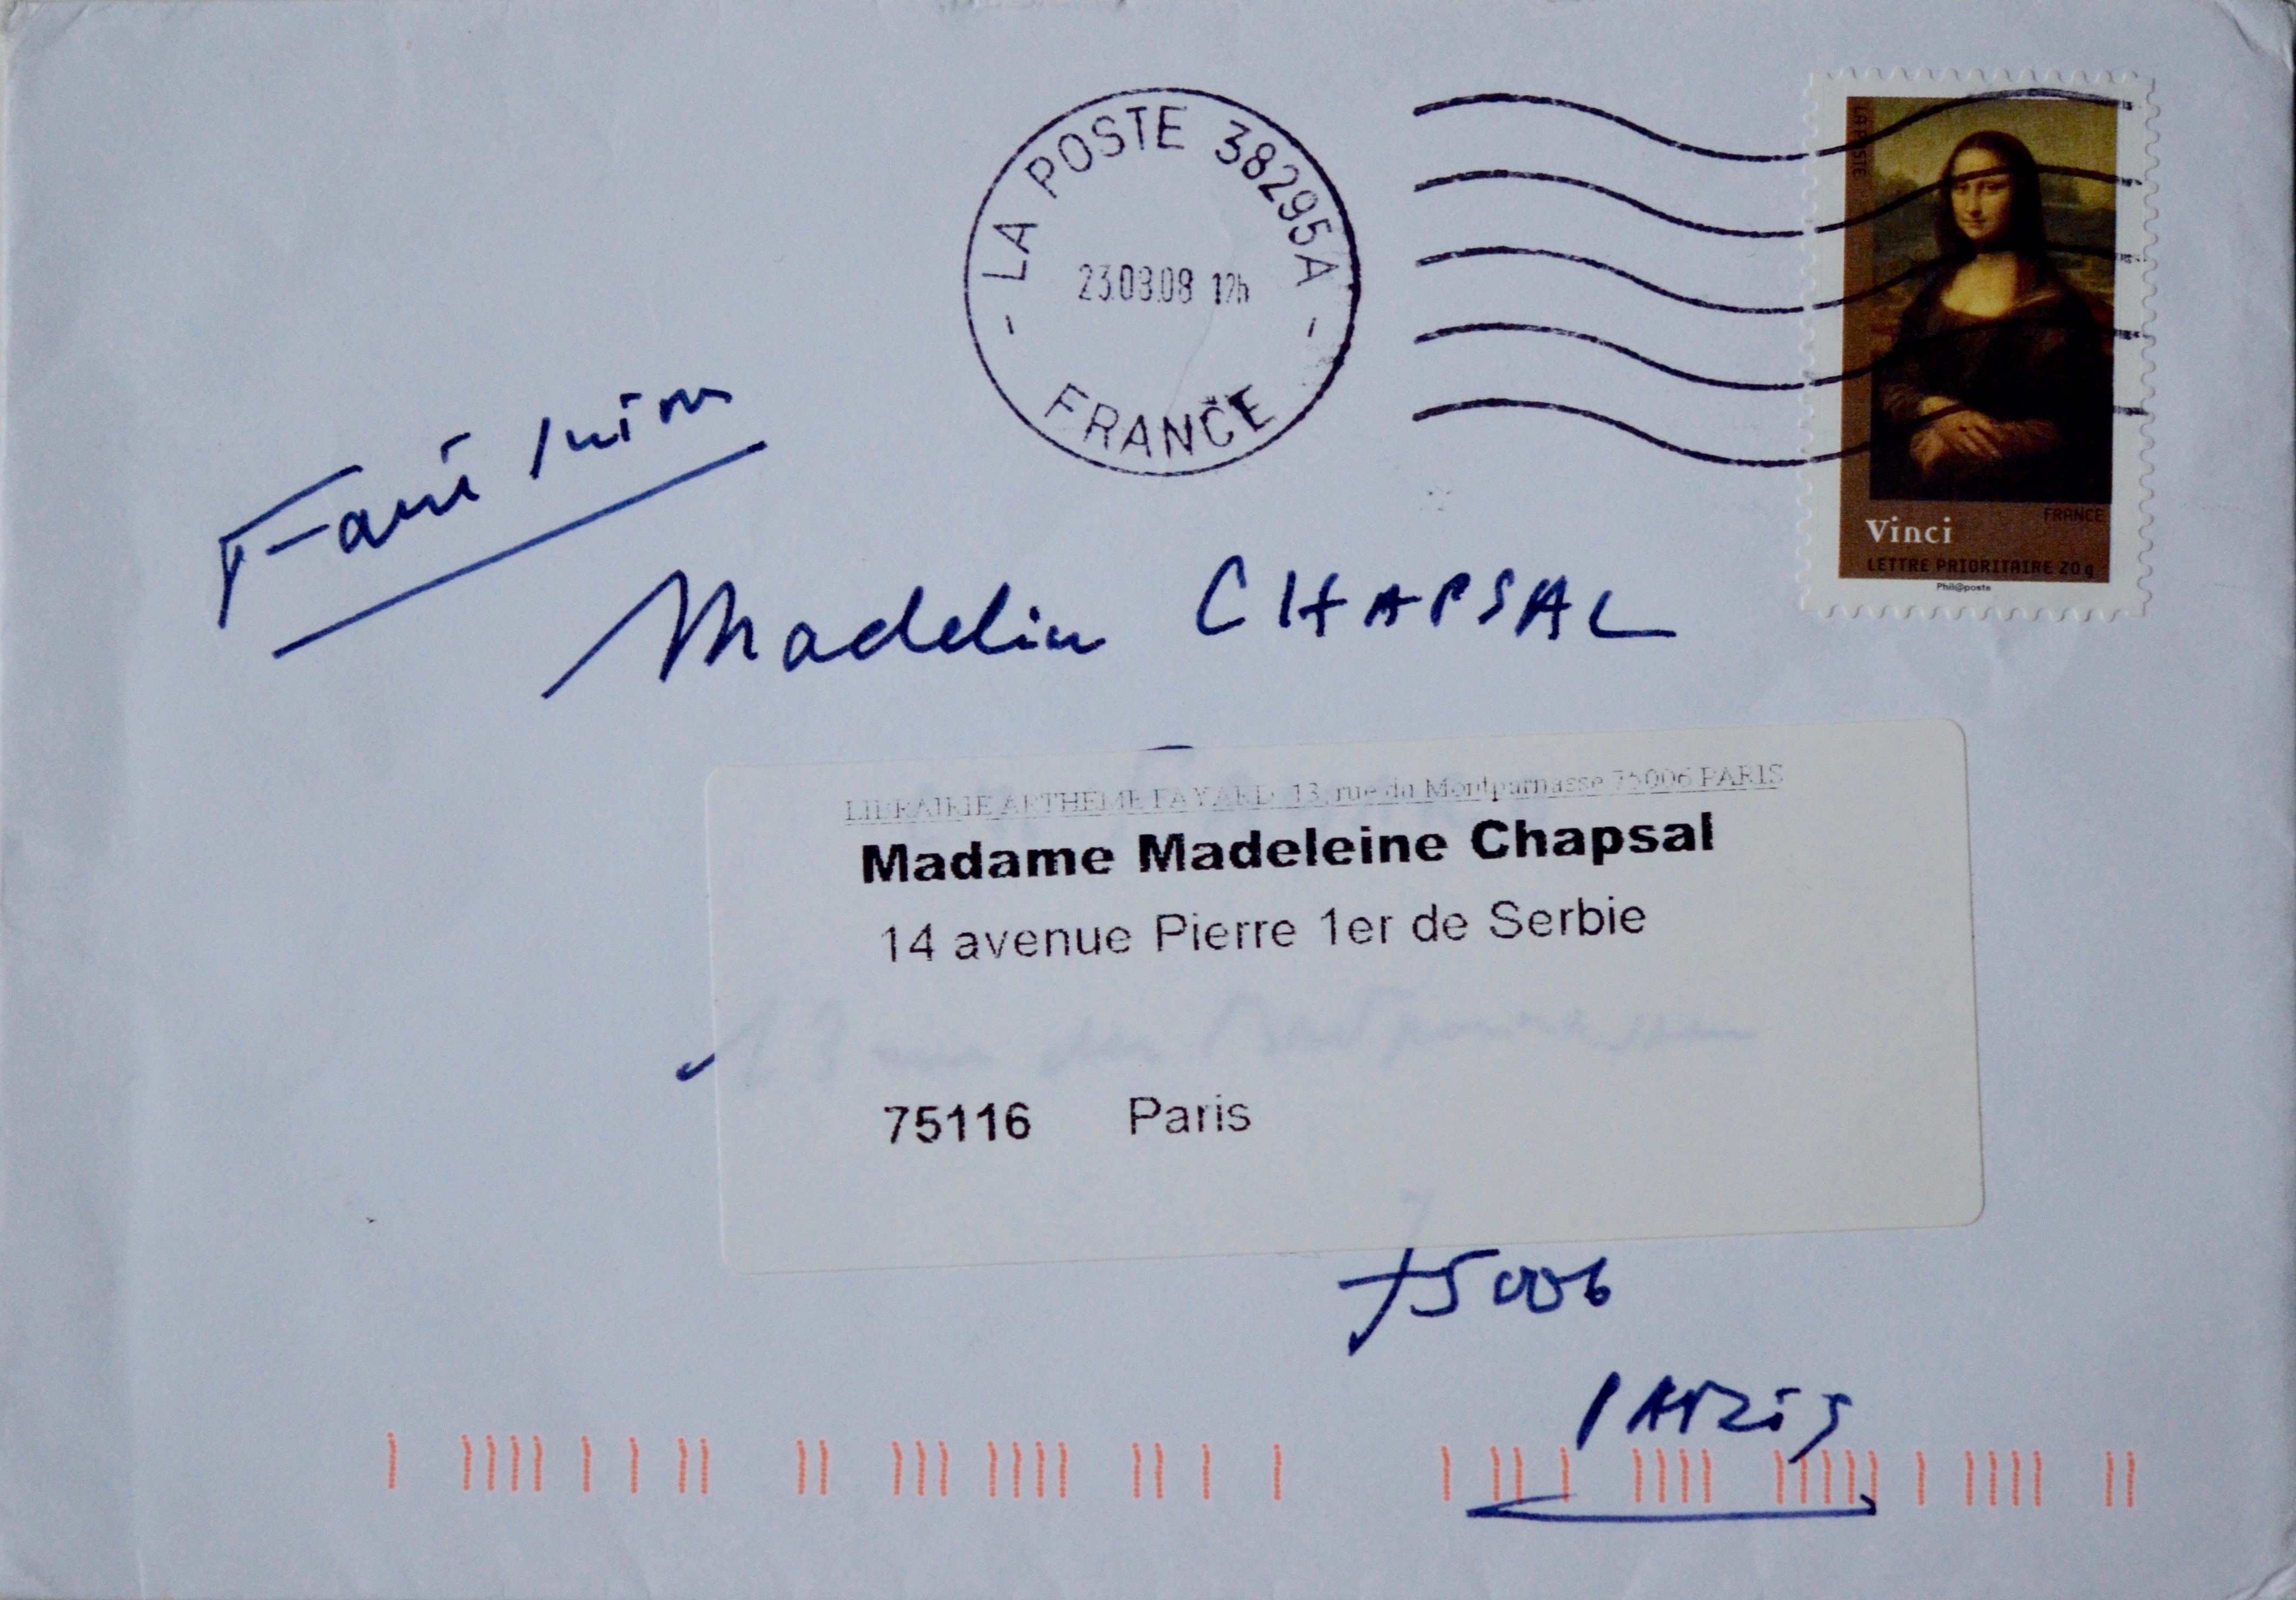 - LA POSTE 38295A -
23.08.08 12h
FRANCE
LA POSTE
Vinci
FRANCE
LETTRE PRIORITAIRE 20g
Phil@poste
Madeleine CHAPSAL
LIBRAIRIE ARTHEME FAYARD 13, rue du Montparnasse 75006 PARIS
Madame Madeleine Chapsal
14 avenue Pierre 1er de Serbie
13 rue du Montparnasse
75116 Paris
75006
PARIS